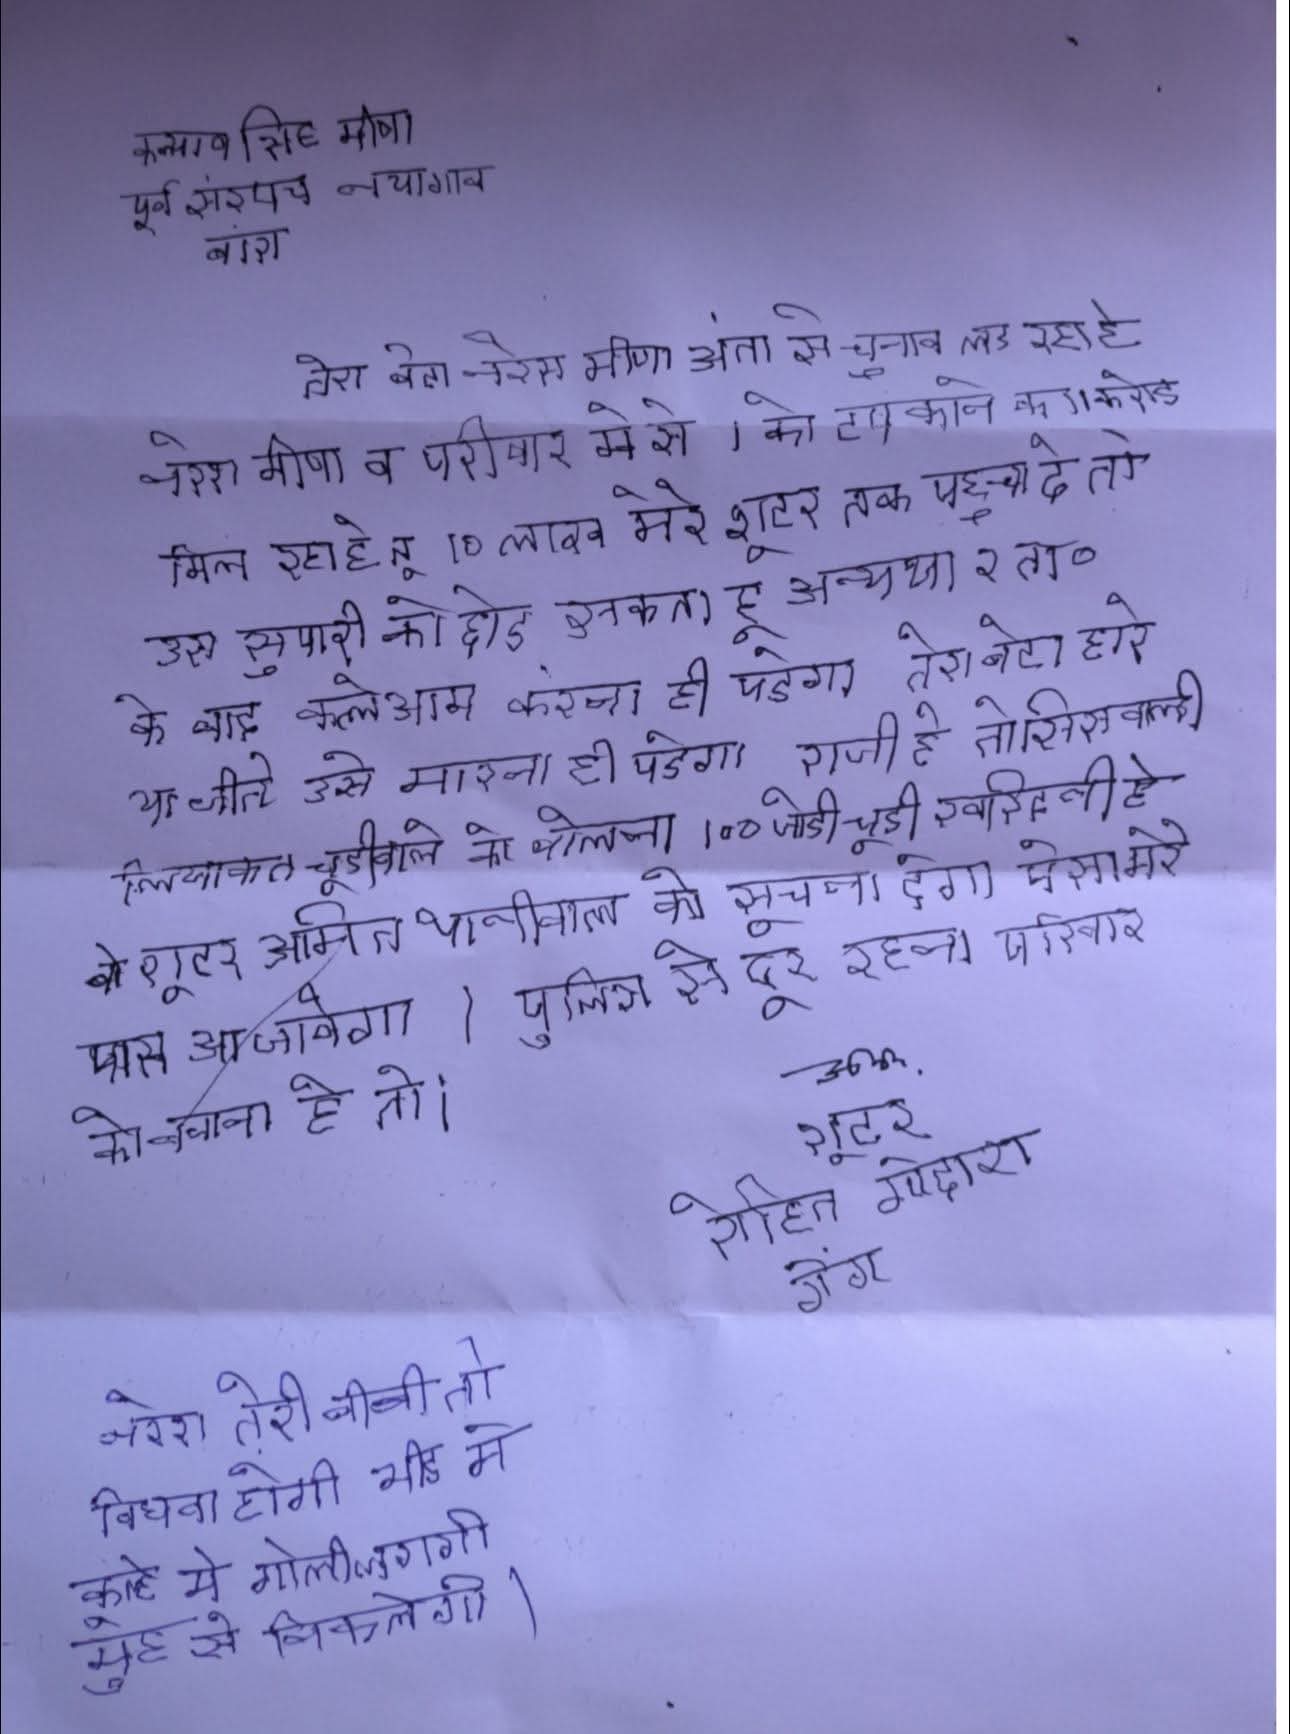 कल्याण सिह मीणा
पूर्व संरपच नयागाव
बांरा
तेरा बेटा नरेस मीणा अंता से चुनाव लड रहा हे
नरेश मीणा व परीवार मे से 1 को टपकाने का 1 करोड
मिल रहा हे तू 10 लाख मेरे शूटर तक पहुचा दे तो
उस सुपारी को छोड सकता हू अन्यथा 2 ता०
के बाद कत्लेआम करना ही पडेगा तेरा बेटा हारे
या जीते उसे मारना ही पडेगा राजी हे तो सिसवाली
लियाकत चूडीवाले को बोलना 100 जोडी चूडी खरिदनी हे
वो शूटर अमित धानीवाल को सूचना देगा पेसा मेरे
पास आ जावेगा । पुलिस से दूर रहना परिवार
को बचाना हे तो।
शूटर
रोहित गोदारा
गेंग
नरेश तेरी बीबी तो
विधवा होगी भीड मे
मे गोली लगगी
मुह से निकलेगी ।